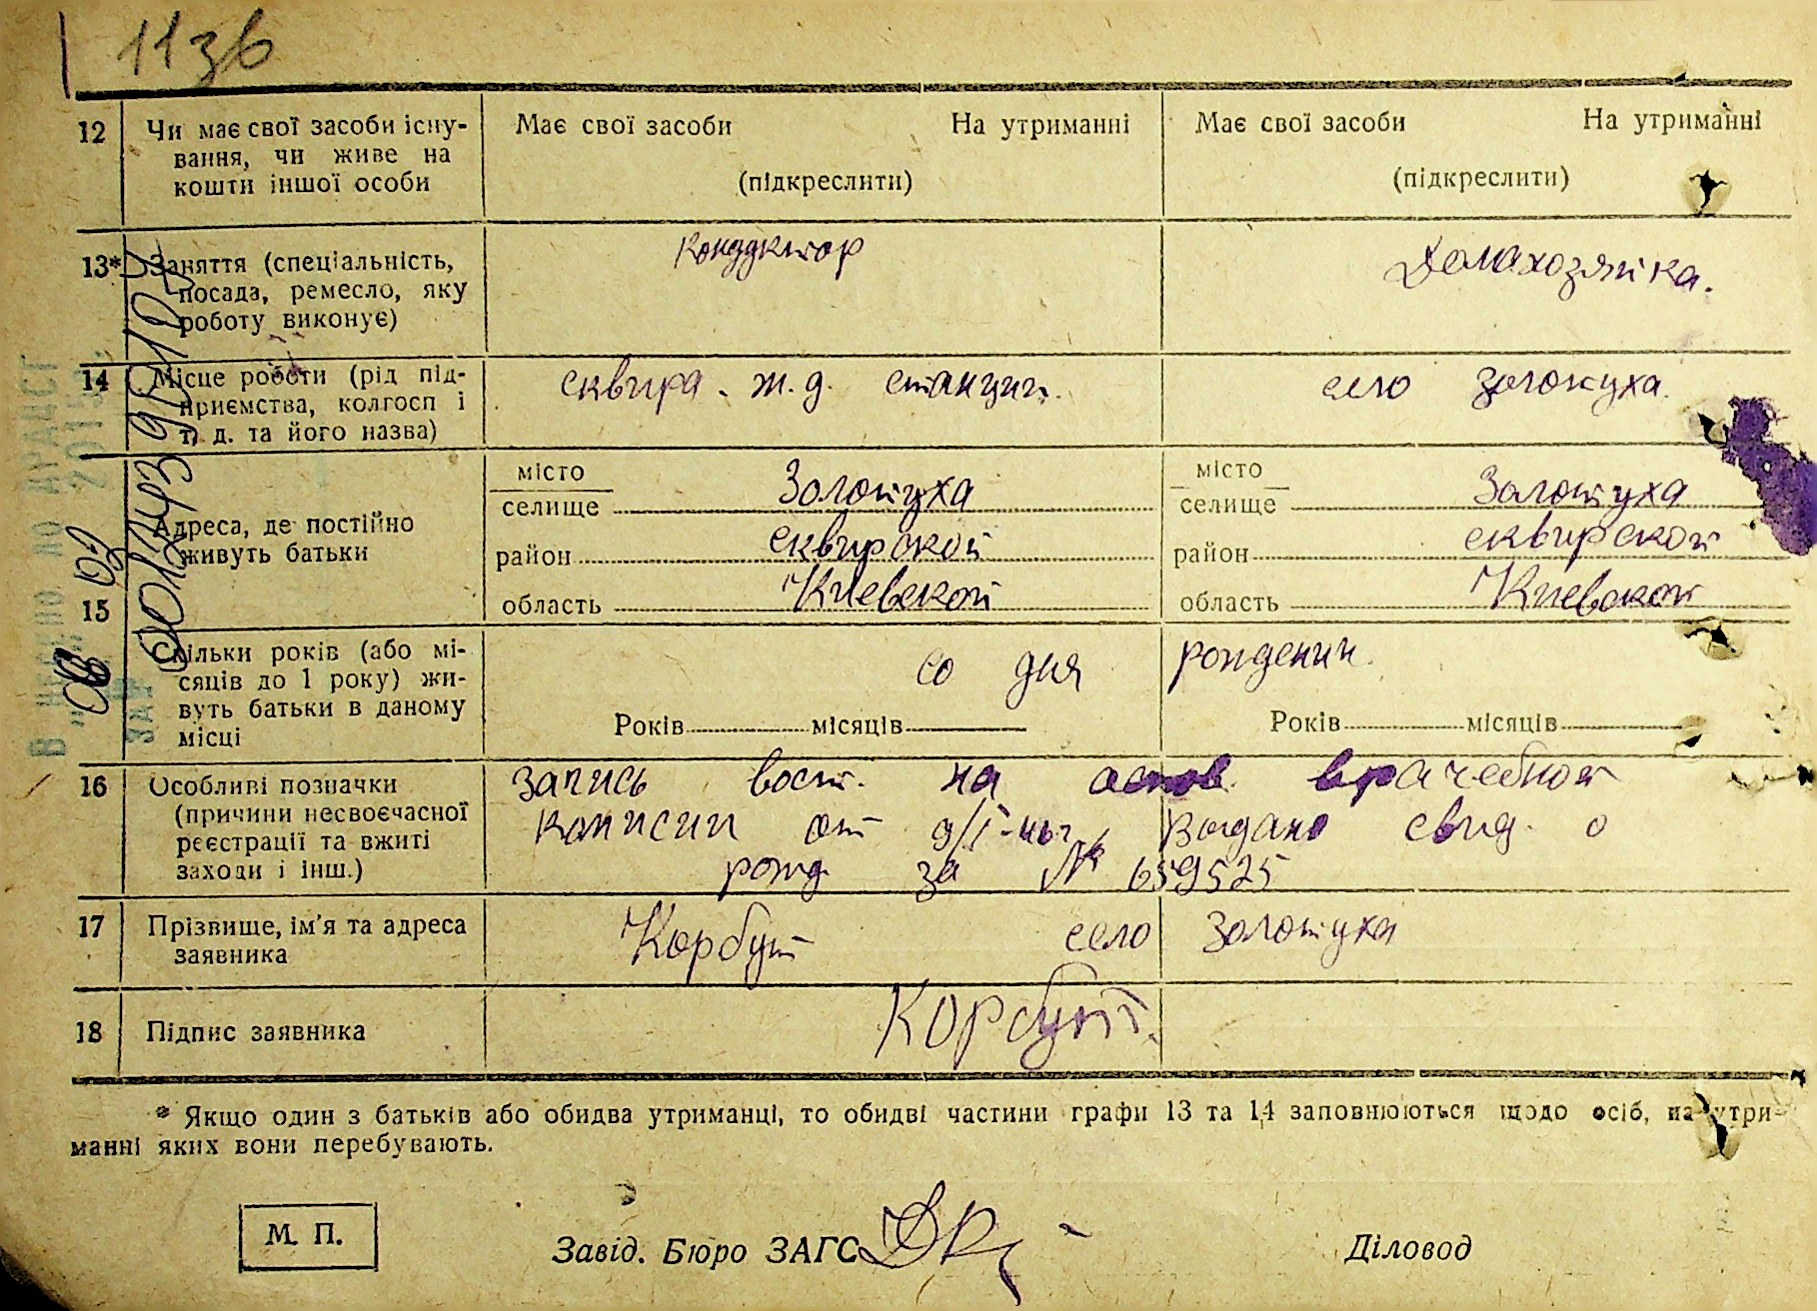 11зв
12 Чи має свої засоби існу- Має свої засоби На утриманні Має свої засоби На утриманні
вання, чи живе на
кошти іншої особи (підкреслити) (підкреслити)
13* Заняття (спеціальність, кондуктор Домахозяйка.
посада, ремесло, яку
роботу виконує)
14 Місце роботи (рід під- сквира. ж.д. станции. село золотуха.
приємства, колгосп і
т. д. та його назва)
місто Золотуха місто Золотуха
селище селище
Адреса, де постійно район сквирской район сквирской
живуть батьки
15 область Киевской область Киевской
Скільки років (або мі- со дня рождении.
сяців до 1 року) жи-
вуть батьки в даному Років місяців Років місяців
місці
16 Особливі позначки запись вост. на основ. врачебной
(причини несвоєчасної комисии от выдано свид. о
реєстрації та вжиті рожд за № 659525
заходи і інш.)
17 Прізвище, ім'я та адреса Корбут село золотуха
заявника
18 Підпис заявника Корбут.
* Якщо один з батьків або обидва утриманці, то обидві частини графи 13 та 14 заповнюються щодо осіб, на утри-
манні яких вони перебувають.
М. П. Завід. Бюро ЗАГС Діловод